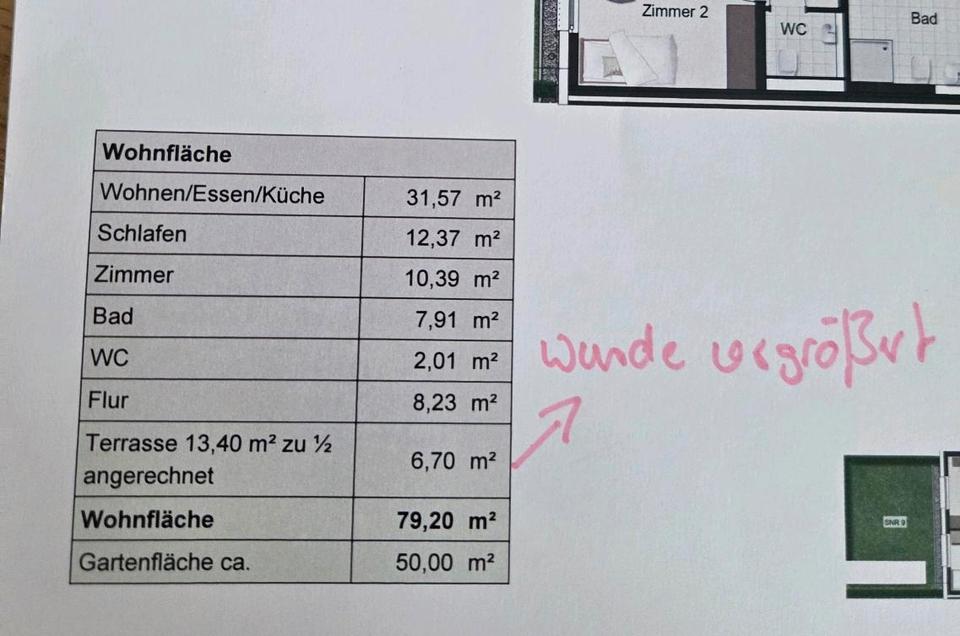 Zimmer 2
WC
Bad
Wohnfläche
Wohnen/Essen/Küche 31,57 m²
Schlafen 12,37 m²
Zimmer 10,39 m²
Bad 7,91 m²
WC 2,01 m²
Flur 8,23 m²
Terrasse 13,40 m² zu ½
angerechnet 6,70 m²
wurde vergrößert
Wohnfläche 79,20 m²
Gartenfläche ca. 50,00 m²
SNR 9